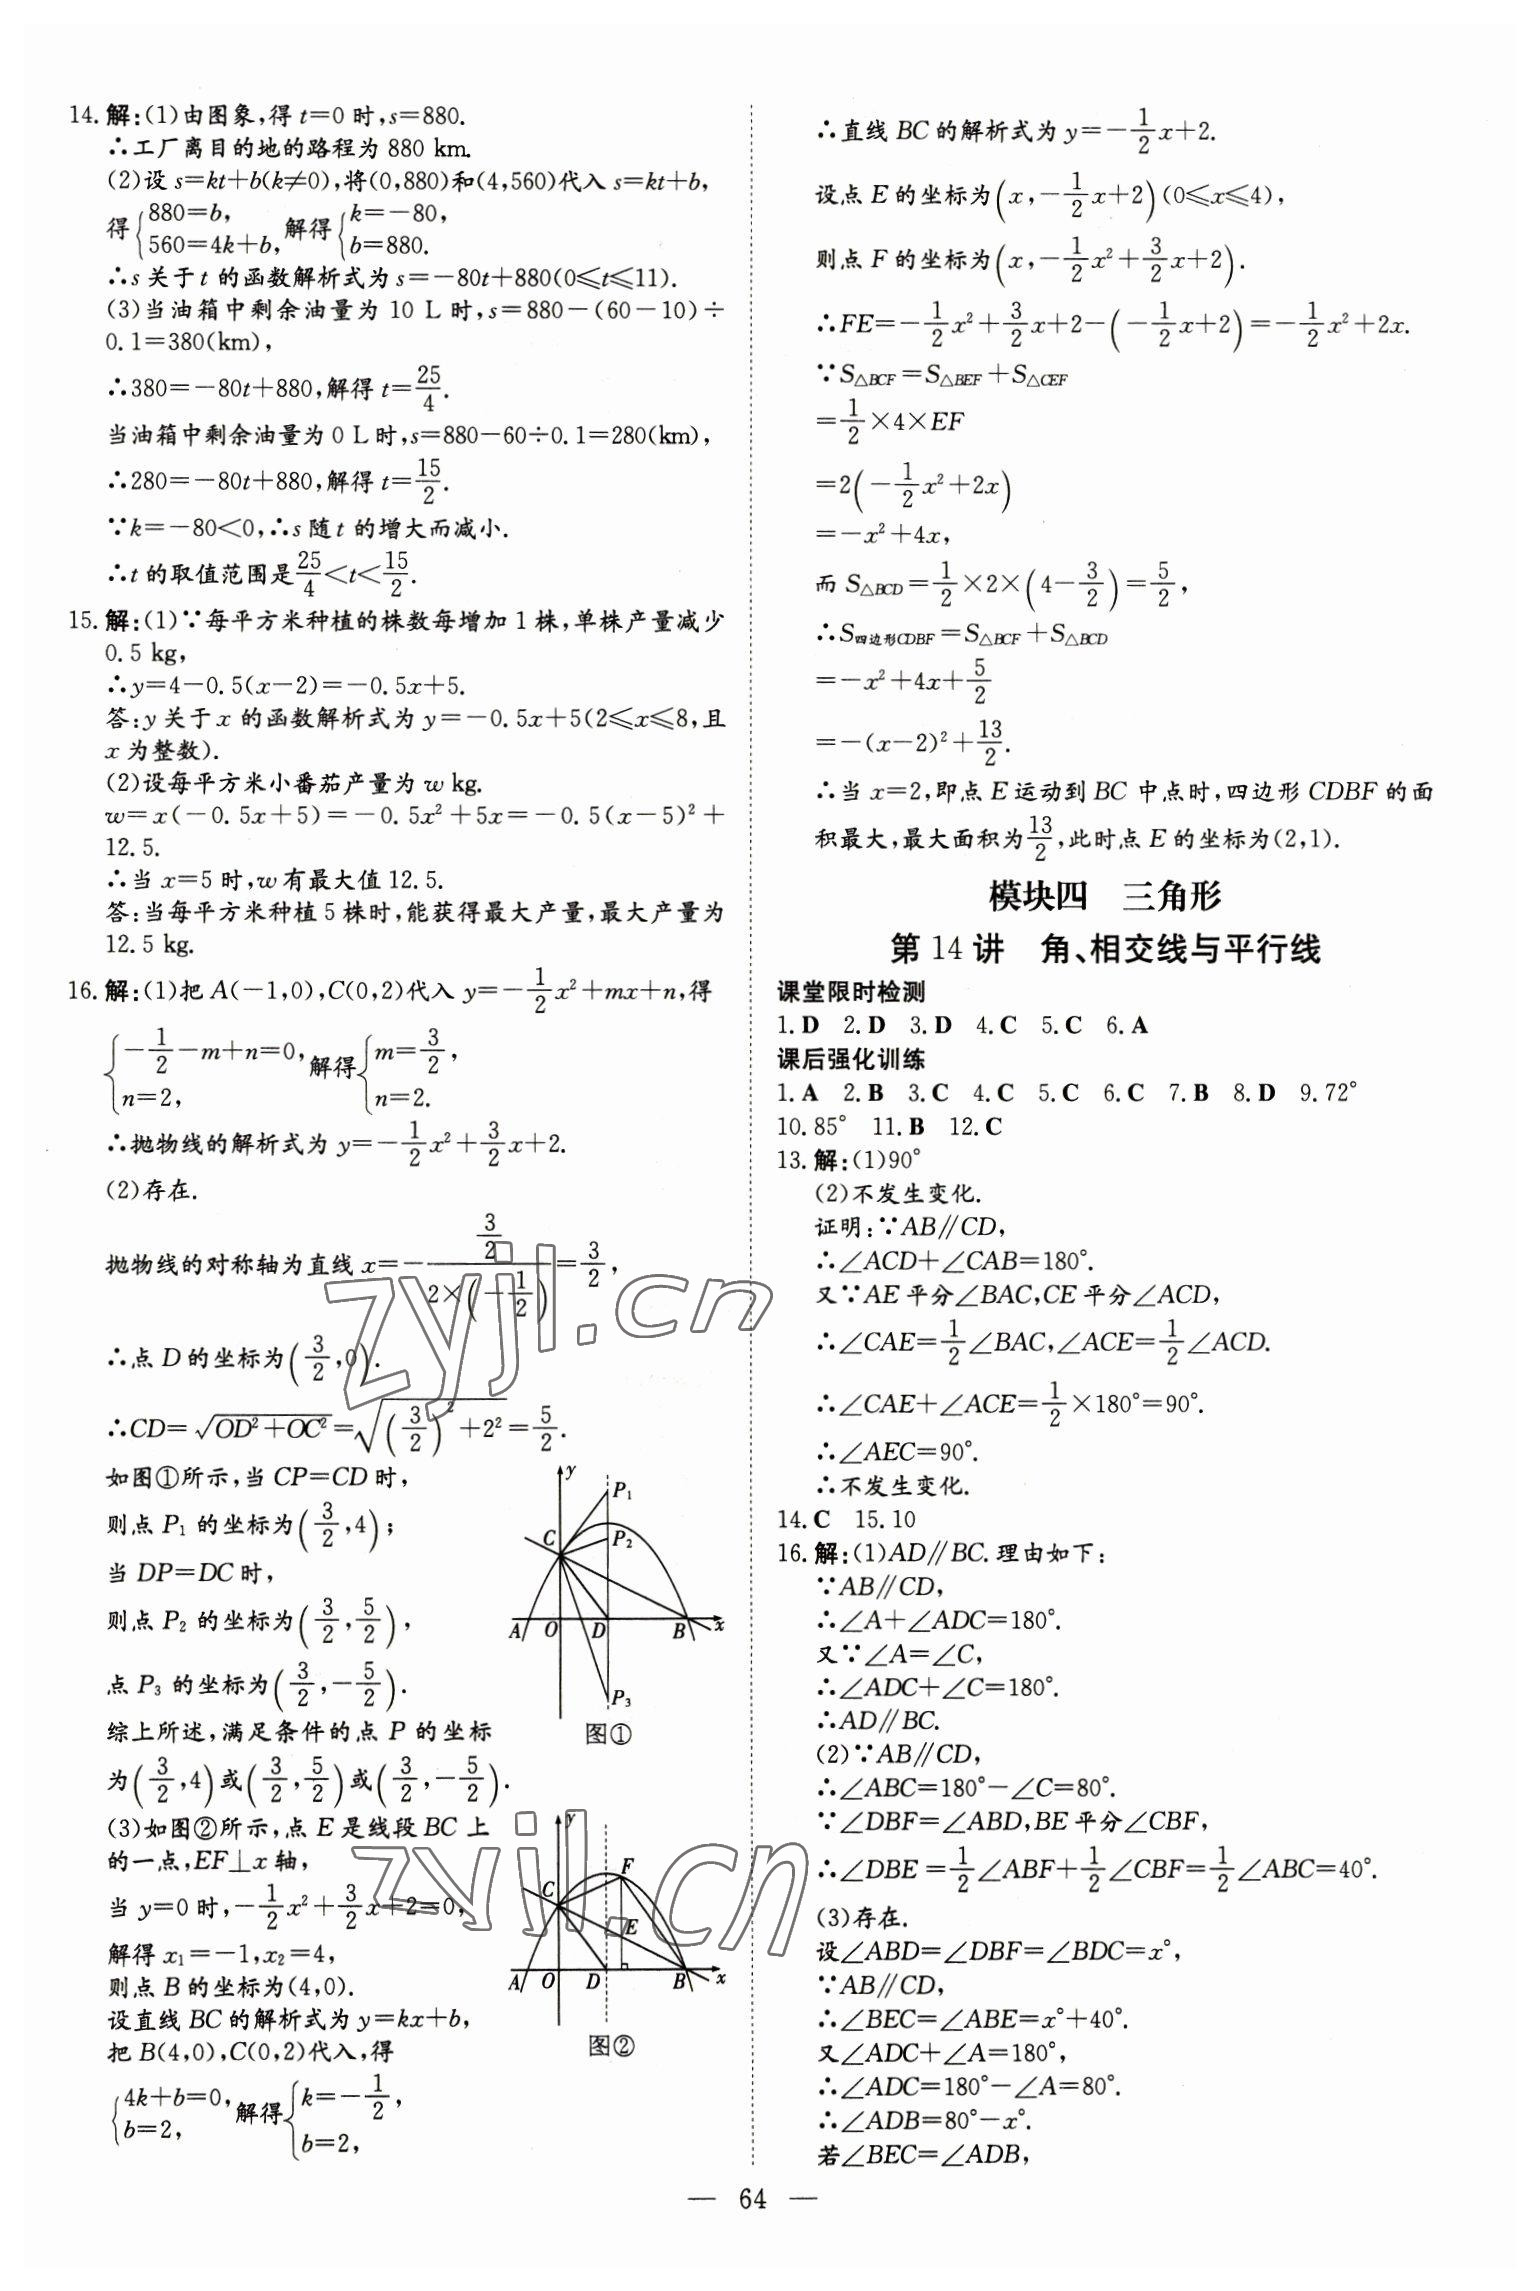 14. 解:(1)由图象,得 t=0 时,s=880.
∴工厂离目的地的路程为 880 km.
(2)设 s=kt+b(k≠0),将(0,880)和(4,560)代入 s=kt+b,
得{880=b, 560=4k+b, 解得{k=−80, b=880.
∴s 关于 t 的函数解析式为 s=−80t+880(0≤t≤11).
(3)当油箱中剩余油量为 10 L 时,s=880−(60−10)÷
0.1=380(km),
∴380=−80t+880,解得 t=25/4.
当油箱中剩余油量为 0 L 时,s=880−60÷0.1=280(km),
∴280=−80t+880,解得 t=15/2.
∵k=−80<0,∴s 随 t 的增大而减小.
∴t 的取值范围是25/4<t<15/2.
15. 解:(1)∵每平方米种植的株数每增加 1 株,单株产量减少
0.5 kg,
∴y=4−0.5(x−2)=−0.5x+5.
答:y 关于 x 的函数解析式为 y=−0.5x+5(2≤x≤8,且
x 为整数).
(2)设每平方米小番茄产量为 w kg.
w=x(−0.5x+5)=−0.5x²+5x=−0.5(x−5)²+
12.5.
∴当 x=5 时,w 有最大值 12.5.
答:当每平方米种植 5 株时,能获得最大产量,最大产量为
12.5 kg.
16. 解:(1)把 A(−1,0),C(0,2)代入 y=−1/2x²+mx+n,得
{−1/2−m+n=0, n=2, 解得{m=3/2, n=2.
∴抛物线的解析式为 y=−1/2x²+3/2x+2.
(2)存在.
抛物线的对称轴为直线 x=−(3/2)/(2×(−1/2))=3/2,
∴点 D 的坐标为(3/2,0).
∴CD=√(OD²+OC²)=√((3/2)²+2²)=5/2.
如图①所示,当 CP=CD 时,
则点 P₁ 的坐标为(3/2,4);
当 DP=DC 时,
则点 P₂ 的坐标为(3/2,5/2),
点 P₃ 的坐标为(3/2,−5/2).
综上所述,满足条件的点 P 的坐标
为(3/2,4)或(3/2,5/2)或(3/2,−5/2).
y
P₁
C
P₂
A O D B x
P₃
图①
(3)如图②所示,点 E 是线段 BC 上
的一点,EF⊥x 轴,
当 y=0 时,−1/2x²+3/2x+2=0,
解得 x₁=−1,x₂=4,
则点 B 的坐标为(4,0).
设直线 BC 的解析式为 y=kx+b,
把 B(4,0),C(0,2)代入,得
{4k+b=0, b=2, 解得{k=−1/2, b=2,
y
F
C
E
A O D B x
图②
∴直线 BC 的解析式为 y=−1/2x+2.
设点 E 的坐标为(x,−1/2x+2)(0≤x≤4),
则点 F 的坐标为(x,−1/2x²+3/2x+2).
∴FE=−1/2x²+3/2x+2−(−1/2x+2)=−1/2x²+2x.
∵S△BCF=S△BEF+S△CEF
=1/2×4×EF
=2(−1/2x²+2x)
=−x²+4x,
而 S△BCD=1/2×2×(4−3/2)=5/2,
∴S四边形CDBF=S△BCF+S△BCD
=−x²+4x+5/2
=−(x−2)²+13/2.
∴当 x=2,即点 E 运动到 BC 中点时,四边形 CDBF 的面
积最大,最大面积为13/2,此时点 E 的坐标为(2,1).
模块四 三角形
第 14 讲 角、相交线与平行线
课堂限时检测
1. D 2. D 3. D 4. C 5. C 6. A
课后强化训练
1. A 2. B 3. C 4. C 5. C 6. C 7. B 8. D 9. 72°
10. 85° 11. B 12. C
13. 解:(1)90°
(2)不发生变化.
证明:∵AB∥CD,
∴∠ACD+∠CAB=180°.
又∵AE 平分∠BAC,CE 平分∠ACD,
∴∠CAE=1/2∠BAC,∠ACE=1/2∠ACD.
∴∠CAE+∠ACE=1/2×180°=90°.
∴∠AEC=90°.
∴不发生变化.
14. C 15. 10
16. 解:(1)AD∥BC. 理由如下:
∵AB∥CD,
∴∠A+∠ADC=180°.
又∵∠A=∠C,
∴∠ADC+∠C=180°.
∴AD∥BC.
(2)∵AB∥CD,
∴∠ABC=180°−∠C=80°.
∵∠DBF=∠ABD,BE 平分∠CBF,
∴∠DBE=1/2∠ABF+1/2∠CBF=1/2∠ABC=40°.
(3)存在.
设∠ABD=∠DBF=∠BDC=x°,
∵AB∥CD,
∴∠BEC=∠ABE=x°+40°.
又∠ADC+∠A=180°,
∴∠ADC=180°−∠A=80°.
∴∠ADB=80°−x°.
若∠BEC=∠ADB,
— 64 —
zyjl.cn
zyjl.cn